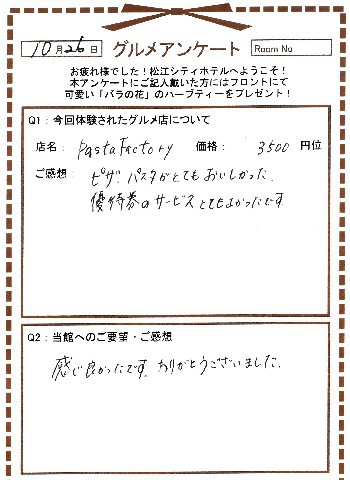 10月26日 グルメアンケート Room No
お疲れ様でした！松江シティホテルへようこそ！
本アンケートにご記入戴いた方にはフロントにて
可愛い「バラの花」のハーブティーをプレゼント！
Q1：今回体験されたグルメ店について
店名： Pasta Factory 価格： 3500 円位
ご感想： ピザ、パスタがとてもおいしかった。
優待券のサービスとてもよかったです
Q2：当館へのご要望・ご感想
感じ良かったです。ありがとうございました。